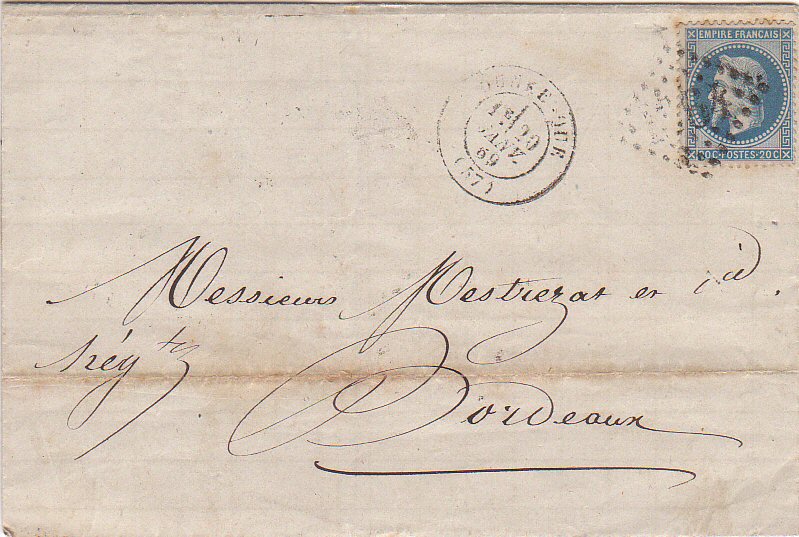 EMPIRE FRANÇAIS
20C·POSTES·20C
1E 20
JANV
69
Messieurs Mestrezat et Cie.
Négts
Bordeaux